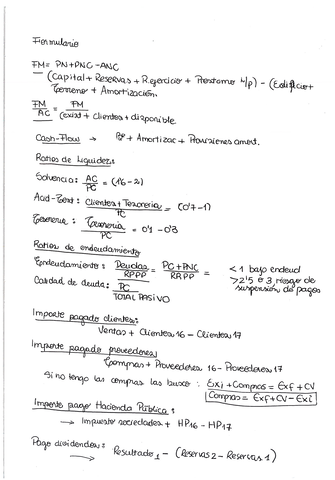 Formulario
FM = PN + PNC - ANC
(Capital + Reservas + R.ejercicio + Prestamo l/p) - (Edificio +
Terreno + Amortización.
FM/AC = FM/(exist + Clientes + disponible.
Cash-Flow → Bº + Amortizac + Provisiones amort.
Ratios de Liquidez:
Solvencia: AC/PC = (1'6 - 2)
Acid-Test: Clientes + Tesoreria/PC = (0'7 - 1)
Tesoreria: Tesoreria/PC = 0'1 - 0'3
Ratios de endeudamiento
Endeudamiento: Deudas/RRPP = PC + PNC/RRPP = < 1 bajo endeud
>2'5 ó 3 riesgo de
suspensión de pagos
Calidad de deuda: PC/TOTAL PASIVO
Importe pagado clientes:
Ventas + Clientes 16 - Clientes 17
Importe pagado proveedores
Compras + Proveedores 16 - Proveedores 17
Si no tengo las compras las busco: Exi + Compras = Exf + CV
Compras = Exf + CV - Exi
Importe pago Hacienda Pública:
→ Impuesto sociedades + HP16 - HP17
Pago dividendos: Resultado 1 - (Reservas 2 - Reservas 1)
→